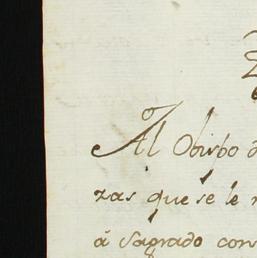 Al Obispo d
zas que se le
á Sagrado con